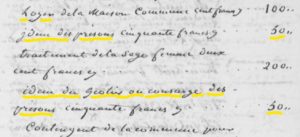 Loyer de la Maison Commune cent francs 100 "
idem des prisons cinquante francs 50 "
traitement de la sage femme deux
cent francs 200 "
idem du geolier ou concierge des
prisons cinquante francs 50 "
Contingent de la commune pour